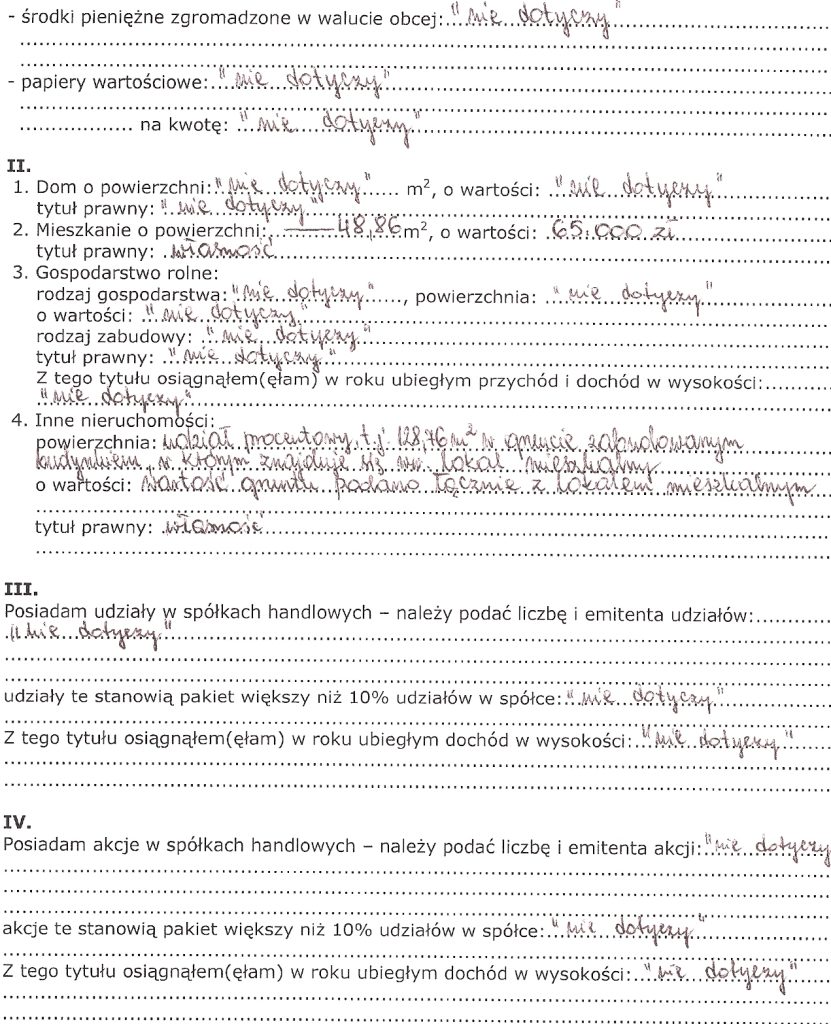 - środki pieniężne zgromadzone w walucie obcej: "nie dotyczy"
- papiery wartościowe: "nie dotyczy"
na kwotę: "nie dotyczy"
II.
1. Dom o powierzchni: "nie dotyczy" m², o wartości: "nie dotyczy"
tytuł prawny: "nie dotyczy"
2. Mieszkanie o powierzchni: 48,86 m², o wartości: 65.000 zł
tytuł prawny: własność
3. Gospodarstwo rolne:
rodzaj gospodarstwa: "nie dotyczy", powierzchnia: "nie dotyczy"
o wartości: "nie dotyczy"
rodzaj zabudowy: "nie dotyczy"
tytuł prawny: "nie dotyczy"
Z tego tytułu osiągnąłem(ęłam) w roku ubiegłym przychód i dochód w wysokości:
"nie dotyczy"
4. Inne nieruchomości:
powierzchnia: udział procentowy t.j. 128,76 m² w gruncie zabudowanym
budynkiem, w którym znajduje się ww. lokal mieszkalny
o wartości: wartość gruntu podano łącznie z lokalem mieszkalnym
tytuł prawny: własność
III.
Posiadam udziały w spółkach handlowych – należy podać liczbę i emitenta udziałów:
"nie dotyczy"
udziały te stanowią pakiet większy niż 10% udziałów w spółce: "nie dotyczy"
Z tego tytułu osiągnąłem(ęłam) w roku ubiegłym dochód w wysokości: "nie dotyczy"
IV.
Posiadam akcje w spółkach handlowych – należy podać liczbę i emitenta akcji: "nie dotyczy
akcje te stanowią pakiet większy niż 10% udziałów w spółce: "nie dotyczy"
Z tego tytułu osiągnąłem(ęłam) w roku ubiegłym dochód w wysokości: "nie dotyczy"